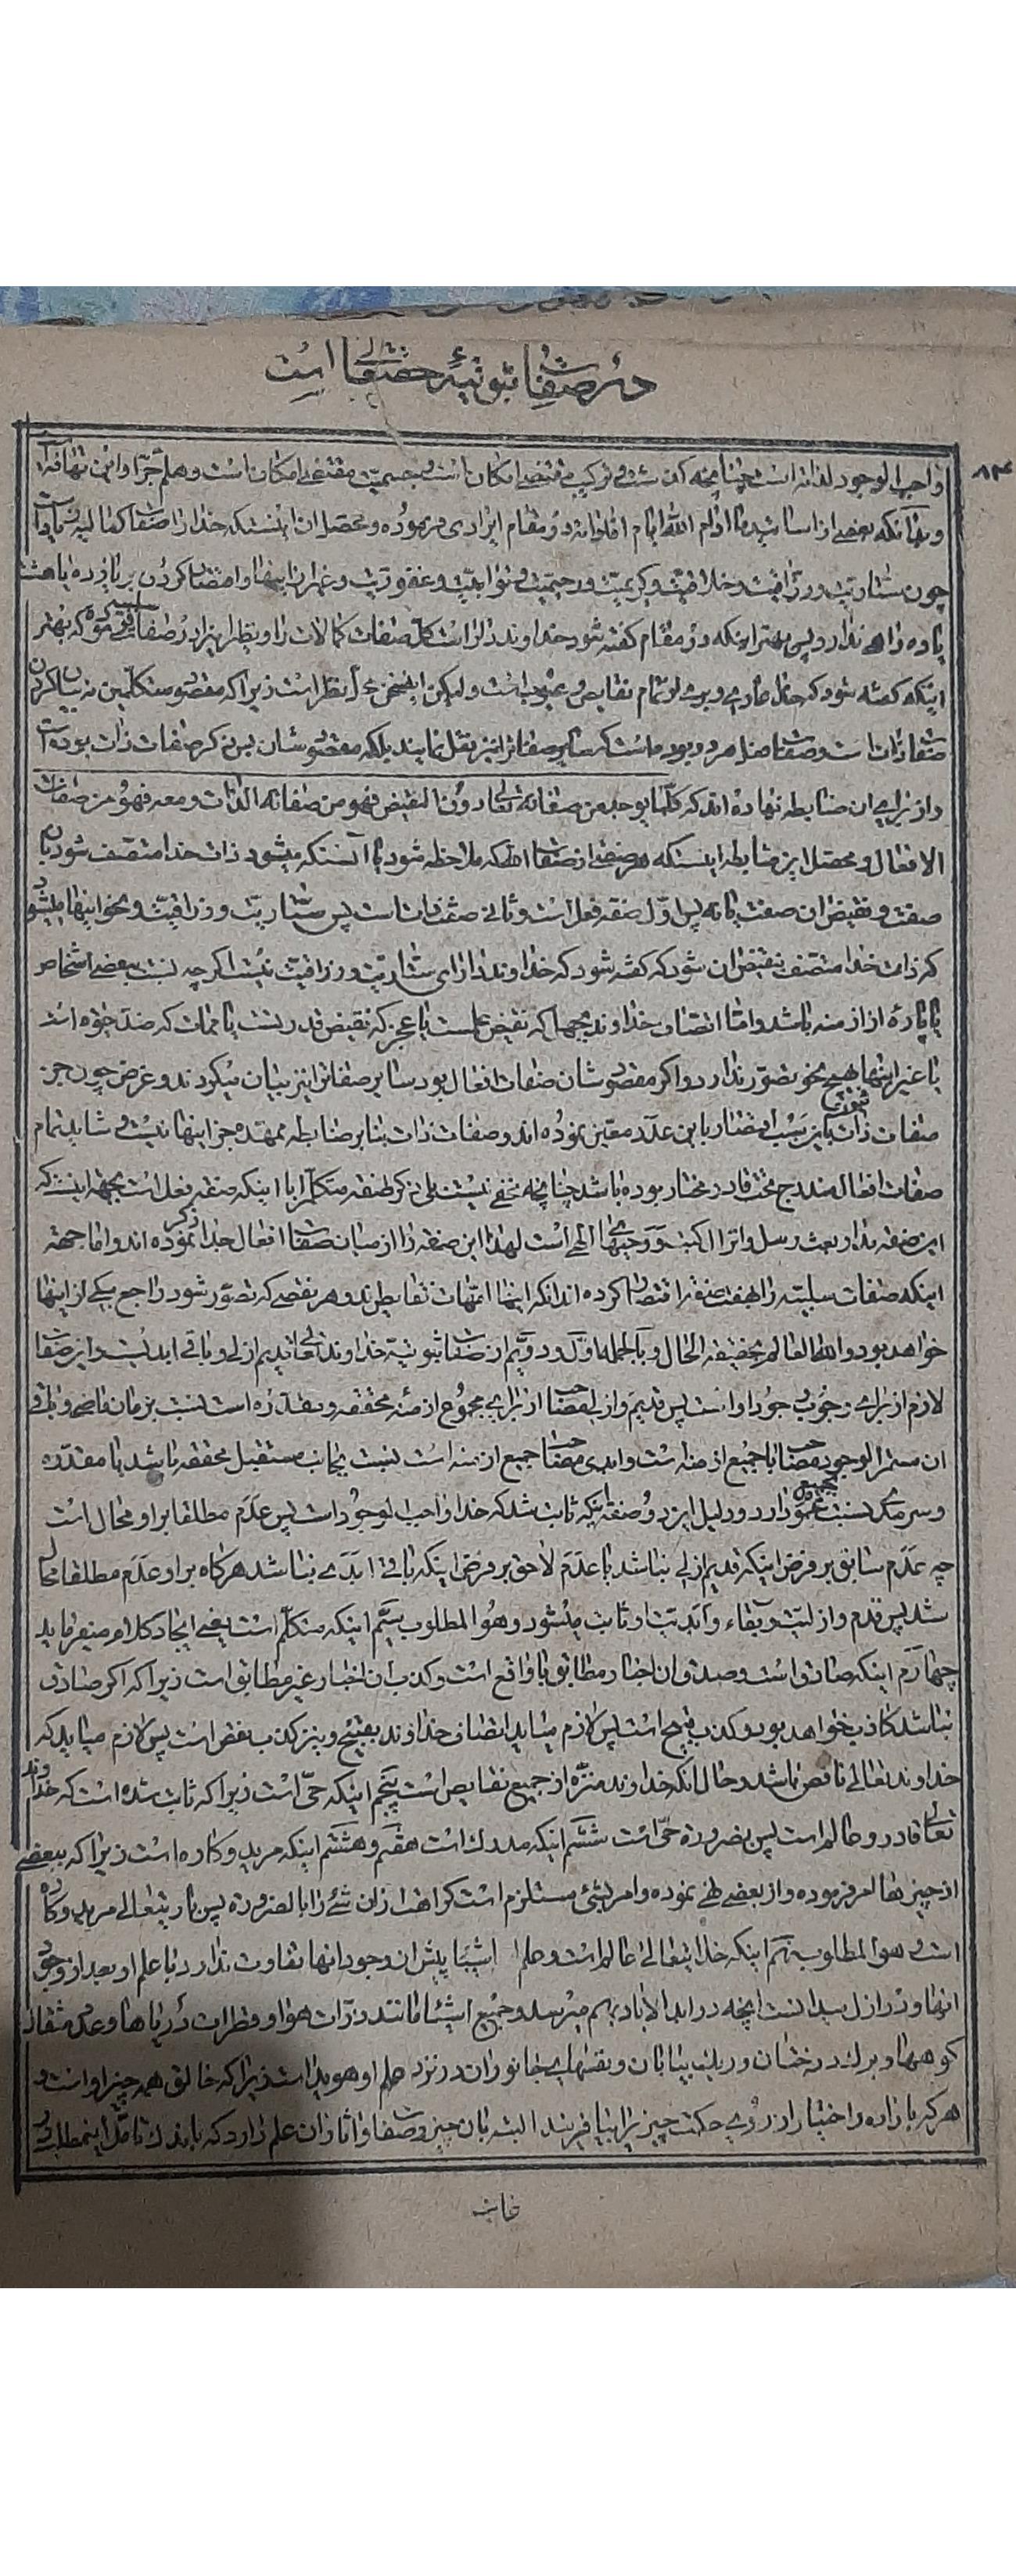 در صفات ثبوتیه حقتعالی است
۸۳
واجب الوجود لذاته است چنانچه گذشت و ترکیب مقتضی امکان است و جسمیت مقتضی امکان است و هلم جرا و این
و بدانکه بعضی از اساتید ما ادام الله ایام افاداته در مقام ایرادی فرموده و محصل آن اینست که خدا را صفات کمالیه بسیار است
چون ستاریت و رزاقیت و خلاقیت و کریمیت و رحیمیت و توابیت و غفوریت و غیر اینها و اقتصار کردن بر پاره یا هشت
پاره راهی ندارد پس بهتر اینکه در مقام گفته شود خداوند دارا است کل صفات کمالات را و نظیر این ایراد در صفات سلبیه نموده که بهتر
اینکه گفته شود که خدا عاری و بری از تمام نقایص و عیوب است و لیکن این سخن محل نظر است زیرا که مقصود متکلمین نه بیان کردن
صفات ذات است و صفات فعل هر دو بوده است که سایر صفات را نیز نقل نمایند بلکه مقصودشان بس ذکر صفات ذات بوده است
و از برای آن ضابطه نهاده اند که کلما یوجد من صفاته تعالی دون النقیض فهو من صفاته الذات و معه فهو من صفات
الافعال و محصل این ضابطه اینستکه هر صفتی از صفات الله که ملاحظه شود یا آنستکه میشود ذات خدا متصف شود بآن
صفت و نقیض آن صفت یا نه پس اول صفت فعل است و ثانی صفت ذات است پس ستاریت و رزاقیت و نحو اینها میشود
که ذات خدا متصف بنقیض آن شود که گفته شود که خداوند دارای ستاریت و رزاقیت نیست اگر چه نسبت ببعضی اشخاص
یا پاره از ازمنه باشد و اما اتصاف خداوند بجهل که نقیض علم است یا عجز که نقیض قدرتست یا ممات که ضد حیوة است
یا غیر اینها هیچ نحو تصور ندارد و اگر مقصودشان صفات افعال بود سایر صفات را نیز بیان میکردند و غرض چون جز
صفات ذات نبود باین سبب اقتصار باین عدد معین نموده اند و صفات ذات بنا بر ضابطه ممهده جز اینها نیست و شاید تمام
صفات افعال مندرج تحت قادر مختار بوده باشد چنانچه مخفی نیست بلی ذکر صفت متکلم را با اینکه صفت فعل است بجهة اینست که
این صفت مدار بعث رسل و انزال کتب و وحیهای الهی است لهذا این صفت را از میان صفات افعال جدا ذکر نموده اند و اما جهة
اینکه صفات سلبیه را بهفت صفت اقتصار کرده اند آنکه اینها امهات نقایص اند و هر نقصی که تصور شود راجع بیکی از اینها
خواهد بود و الله العالم بحقیقة الحال و بالجمله اول و دویم از صفات ثبوتیه خداوند تعالی قدیم ازلی و باقی ابدیست و این صفات
لازم از برای وجوب وجود او است پس قدیم و ازلی مصاحب از برای مجموع ازمنه محققه و مقدره است نسبت بزمان ماضی و باقی
آن مستمر الوجود مصاحب با جمیع ازمنه است و ابدی مصاحب جمیع ازمنه است نسبت بجانب مستقبل محققه باشد یا مقدره
و سرمدی نسبت بجمیع عموم دارد و دلیل این دو صفت اینکه ثابت شد که خدا واجب الوجود است پس عدم مطلقا بر او محال است
چه عدم سابق بر فرض اینکه قدیم ازلی نباشد یا عدم لاحق بر فرض اینکه باقی ابدی نباشد هرگاه بر او عدم مطلقا محال
شد پس قدم و ازلیت و بقاء و ابدیت او ثابت میشود و هو المطلوب سیّم اینکه متکلم است یعنی ایجاد کلام میفرماید
چهارم اینکه صادق است و صدق آن اخبار مطابق با واقع است و کذب آن اخبار غیر مطابق است زیرا که اگر صادق
نباشد کاذب خواهد بود و کذب قبیح است پس لازم میاید اتصاف خداوند بقبیح و نیز کذب نقص است پس لازم میاید که
خداوند تعالی ناقص باشد و حال آنکه خداوند منزه از جمیع نقایص است پنجم اینکه حی است زیرا که ثابت شده است که خداوند
تعالی قادر و عالم است پس بضرورة حی است ششم اینکه مدرک است هفتم و هشتم اینکه مرید و کاره است زیرا که ببعضی
از چیزها امر فرموده و از بعضی نهی نموده و امر بشئ مستلزم است کراهت از آن شئ را بالضرورة پس باریتعالی مرید و کاره
است و هو المطلوب نهم اینکه خدایتعالی عالم است و علم اشیا پیش از وجود آنها تفاوت ندارد با علم او بعد از وجود
آنها و در ازل میدانست آنچه در ابد الاباد بهم میرسد و جمیع اشیاء مانند ذرات هوا و قطرات دریاها و عدد مثقال
کوهها و برک درختان و ریک بیابان و نفسهای جانوران در نزد علم او هویدا است زیرا که خالق همه چیز او است و
هر که باراده و اختیار از روی حکمت چیزیرا بیافریند البته بآن چیز و صفات و آثار آن علم دارد که باندک تأمل اینمطلب